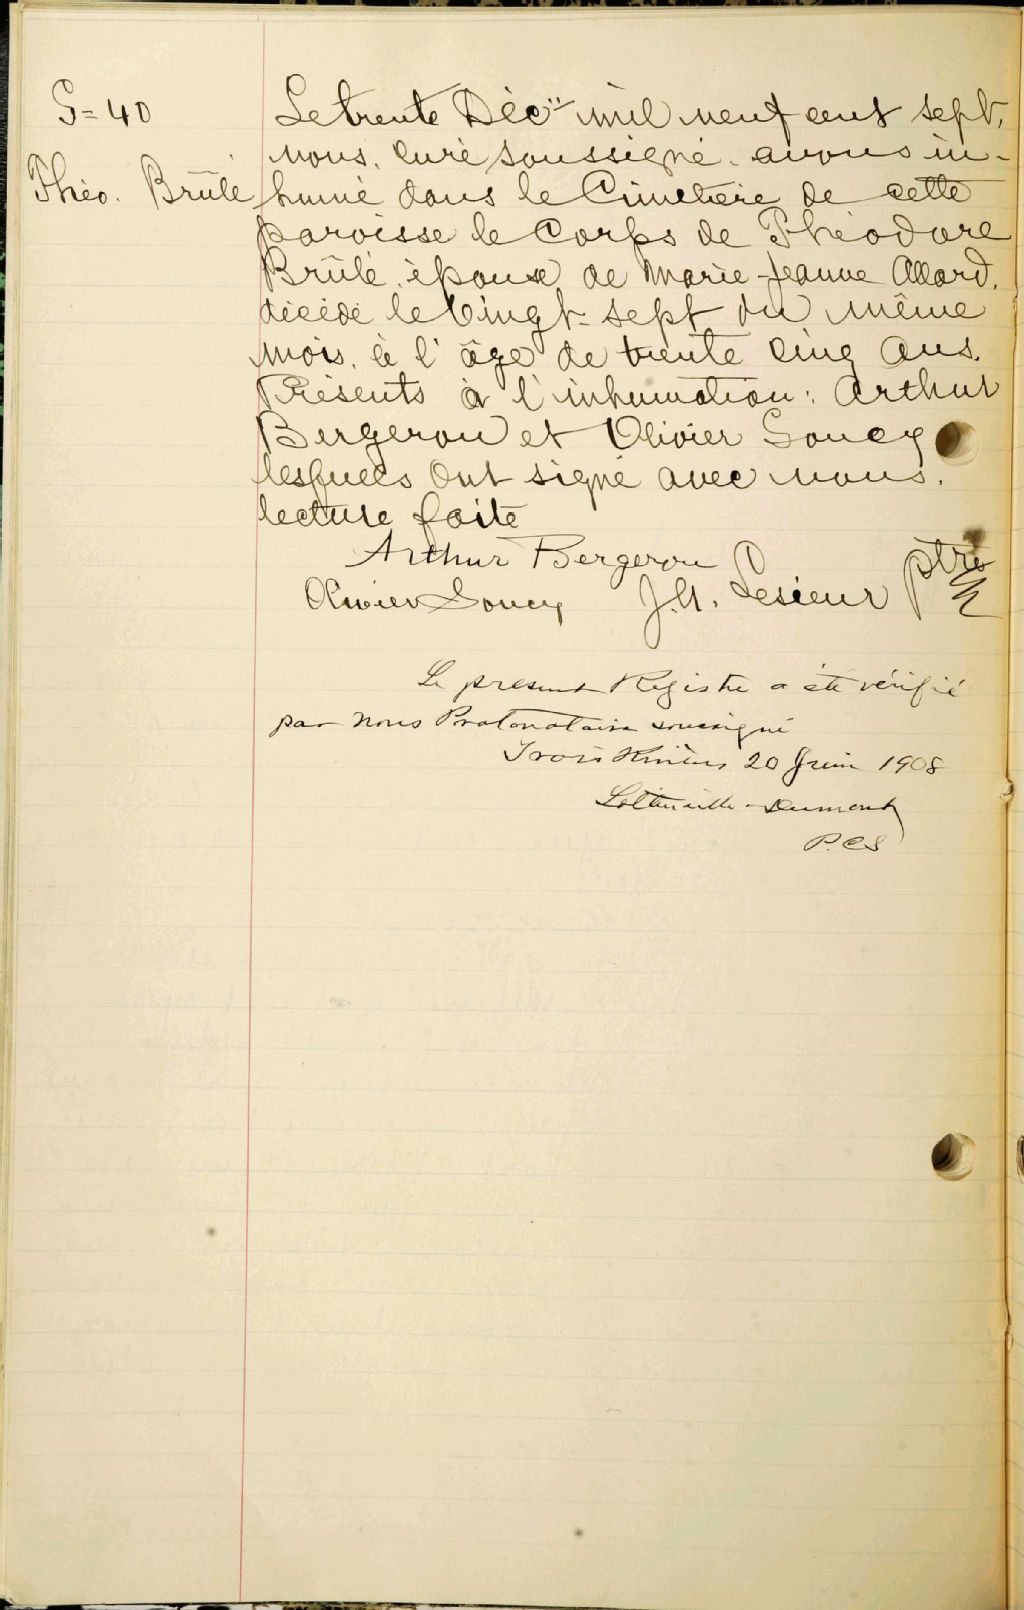 S=40
Théo. Brûlé
Le trente Déc" mil neuf cent sept,
nous, curé soussigné, avons in-
humé dans le Cimetière de cette
paroisse le Corps de Théodore
Brûlé, époux de Marie-Jeanne Allard,
décédé le vingt-sept du même
mois, à l'âge de trente cinq ans.
Présents à l'inhumation: Arthur
Bergeron et Olivier Soucy
lesquels ont signé avec nous.
lecture faite
Arthur Bergeron
Olivier Soucy J.A. Lesieur ptre
Le present Registre a été vérifié
par nous Protonotaire soussigné
Trois Rivières 20 Juin 1908
Lottinville-Dumont
P.C.S